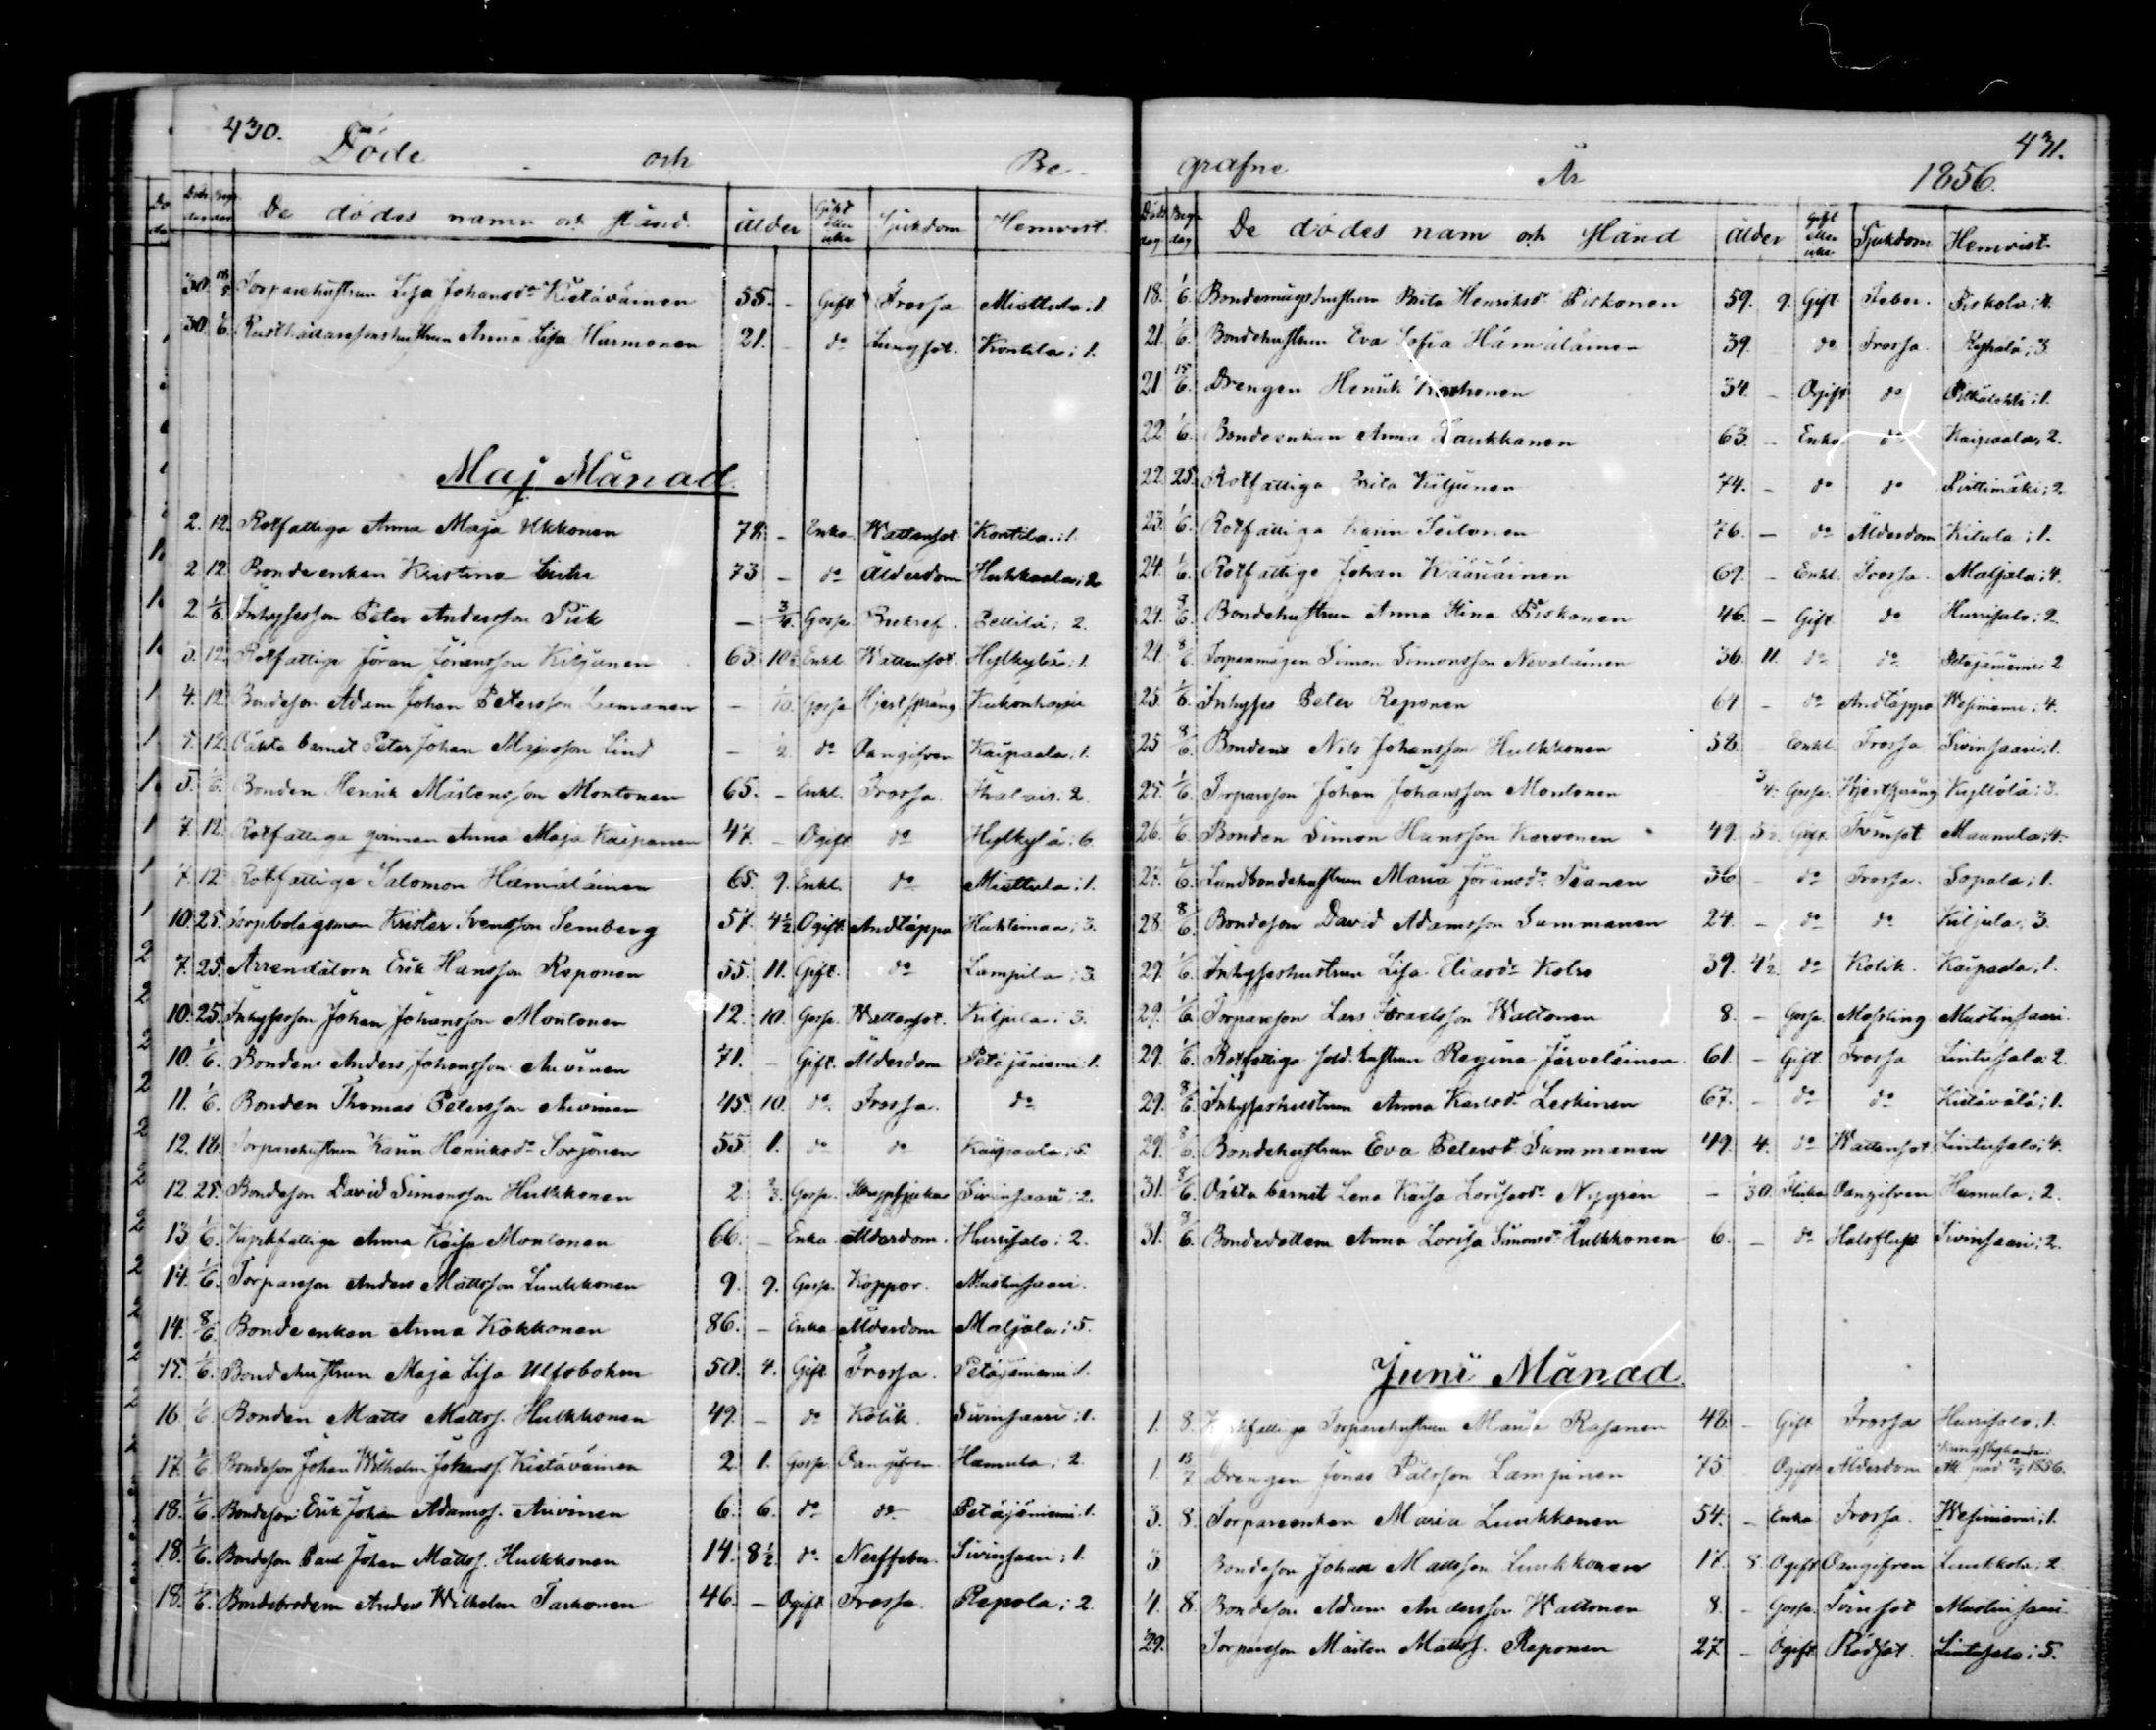 430.
Döde och Be-
Döds dag Begr. dag De dödes namn och stånd. ålder Gift eller icke Sjukdom Hemvist.
30. 18/5 Torparehustrun Lisa Johansdr Kietäväinen 55. - Gift Frossa Miettula; 1.
30. 1/6. Rusthållaresonshustrun Anna Lisa Harmonen 21. - do Lungsot. Kontila; 1.
Maj Månad
2. 12. Rotfattiga Anna Maja Ukkonen 78. - Enka Wattensot Kontila; 1.
2 12 Bondeenkan Kristina 73 - do Ålderdom Huhkaala; 2
2. 1/6. Inhysesson Peter Andersson Piik - 3/4. Gosse Bukref. Pellilä; 2.
3. 12. Rotfattige Jöran Jöransson Kiljunen 63. 10 Enkl. Wattensot. Hylkylä; 1.
4. 12. Bondeson Adam Johan Petersson Lumanen - 1/10. Gosse Hjertspräng
7. 12. Oäkta barnet Peter Johan Majasson Lind - 1/2. do Oangifven Kaipaala; 1.
5. 1/6. Bonden Henrik Mårtensson Montonen 65. - Enkl. Frossa. 2.
7. 12. Rotfattiga qvinnan Anna Maja Kaipanen 47. - Ogift do Hylkylä; 6.
7. 12. Rotfattige Salomon Hämäläinen 65. 9. Enkl. do Miettula; 1.
10. 25. Torpbolagsman Krister Svensson Semberg 57. 4½ Ogift. Andtäppa Huhtimaa; 3.
7. 25. Arrendatorn Erik Hansson Reponen 55. 11. Gift. do Lampila; 3.
10. 25. Inhysesson Johan Johansson Montonen 12. 10. Gosse. Wattensot. Kiljula; 3.
10. 1/6. Bonden Anders Johansson Auvinen 71. - Gift. Ålderdom Petäjäniemi; 1.
11. 1/6. Bonden Thomas Petersson Auvinen 45. 10. do. Frossa. do
12. 18. Torparehustrun Karin Henriksdr Sorjonen 55 1. do do Kaipaala; 5.
12. 25. Bondeson David Simonsson Hulkkonen 2. 2/3. Gosse. Strypsjukan Sivinsaari; 2.
13 1/6. Kyrkfattiga Anna Kaisa Montonen 66. - Enka Ålderdom. Hurrisalo; 2.
14. 1/6. Torpareson Anders Mattsson Luukkonen 9. 9. Gosse. Koppor. Mustinsaari.
14. 8/6. Bondeenkan Anna Kokkonen 86. - Enka Ålderdom Maljala; 5.
15. 1/6. Bondehustrun Maja Lisa Ulfsbohm 50. 4. Gift Frossa. Petäjäniemi; 1.
16. 1/6. Bonden Matts Mattss. Hulkkonen 49. - do Kolik. Sivinsaari; 1.
17. 1/6. Bondeson Johan Wilhelm Johanss. Kietäväinen 2. 1. Gosse. Oangifven. Hamula; 2.
18. 1/6. Bondeson Erik Johan Adamss. Auvinen 6. 6. do do Petäjäniemi; 1.
18. 1/6. Bondeson Paul Johan Mattss. Hulkkonen 14. 8½. do Nerffeber. Sivinsaari; 1.
18. 1/6. Bondebrodern Anders Wilhelm Tarkonen 46. - Ogift Frossa. Repola; 2.
431.
grafne År 1856.
Döds dag Begr dag De dödes namn och stånd ålder gift eller icke Sjukdom Hemvist.
18. 1/6. Bondemågshustrun Brita Henriksdr Piskonen 59. 9. Gift Feber. Piskola; 4.
21. 1/6. Bondehustrun Eva Sofia Hämäläinen 39. do Frossa. 3.
21 15/6. Drengen Henrik Korhonen 34. - Ogift do 1.
22. 1/6. Bondeenkan Anna Laukkanen 63. - Enka do Kaipaala, 2.
22. 25. Rotfattiga Brita Kiljunen 74. - do do Pirttimäki; 2.
23. 1/6. Rotfattiga Karin Seilonen 76. - do Ålderdom Kitula; 1.
24. 1/6. Rotfattige Johan Kääriäinen 69. - Enkl. Frossa. Maljala; 4.
24. 8/6. Bondehustrun Anna Stina Piskonen 46. - Gift do Hurrisalo; 2.
24. 8/6. Torparmågen Simon Simonsson Nevalainen 36. 11. do do Petäjäniemi; 2
25. 1/6. Inhyses Peter Reponen 64 - do Andtäppa Wesiniemi; 4.
25 8/6. Bonden Nils Johansson Hulkkonen 58. Enkl. Frossa Sivinsaari; 1.
25. 1/6. Torpareson Johan Johansson Montonen 3/4. Gosse. Hjertspräng Kyllölä; 3.
26. 1/6. Bonden Simon Hansson Karvonen 49. 5½. Gift. Tvinsot Maunula; 4.
27. 1/6. Landbondehustrun Maria Jöransdr Pianen 36 - do Frossa. Sopala; 1.
28. 8/6. Bondeson David Adamsson Summanen 24. - do do Kiljula, 3.
29. 1/6. Inhyseshustrun Lisa Eliasdr Kolro 39. 4½. do Kolik. Kaipaala; 1.
29. 1/6. Torpareson Lars Israelsson Wattonen 8. - Gosse. Messling Mustinsaari.
29. 1/6. Rotfattiga sold. hustrun Regina Järveläinen 61. - Gift. Frossa Lintusalo; 2.
29. 8/6. Inhyseshustrun Anna Karlsdr Leskinen 67. - do do Kietävälä; 1.
29. 8/6. Bondehustrun Eva Petersdr Summanen 49. 4. do Wattensot Lintusalo; 4.
31. 8/6. Oäkta barnet Lena Kaisa Lovisasdr Nygrén - 1/30. Flicka Oangifven Hamula; 2.
31. 8/6. Bondedottern Anna Lovisa Simonsdr Hulkkonen 6. - do Halsfluss Sivinsaari; 2.
Juni Månad.
1. 8. Kyrkfattiga Torparehustrun Maria Rasanen 48. - Gift Frossa Hurrisalo; 1.
1. 13/7 Drengen Jonas Pålsson Lampinen 75 Ogift Ålderdom
3. 8. Torpareenkan Maria Luukkonen 54. - Enka Frossa. Wesiniemi; 1.
3 Bondeson Johan Mattsson Luukkonen 17. 8. Ogift Oangifven Luukkola; 2
4. 8. Bondeson Adam Andersson Wattonen 8. - Gosse. Tvinsot Mustinsaari
29. Torpareson Mårten Mattss. Reponen 27. - Ogift Rödsot. Lintusalo; 5.